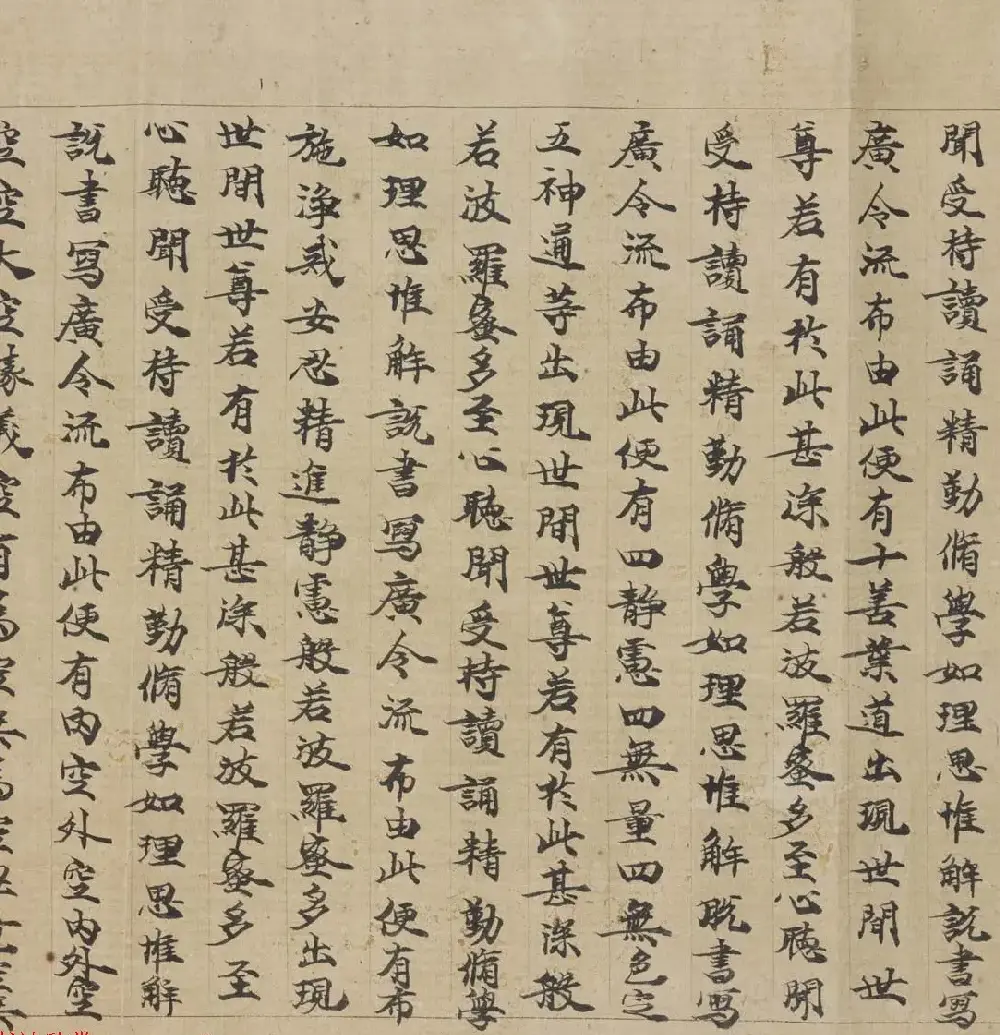 聞受持讀誦精勤脩學如理思惟解說書寫
廣令流布由此便有十善業道出現世間世
尊若有於此甚深般若波羅蜜多至心聽聞
受持讀誦精勤脩學如理思惟解脫書寫
廣令流布由此便有四靜慮四無量四無色定
五神通等出現世間世尊若有於此甚深般
若波羅蜜多至心聽聞受持讀誦精勤脩學
如理思惟解說書寫廣令流布由此便有布
施淨戒安忍精進靜慮般若波羅蜜多出現
世間世尊若有於此甚深般若波羅蜜多至
心聽聞受持讀誦精勤脩學如理思惟解
說書寫廣令流布由此便有內空外空內外空
空空大空勝義空有為空無為空